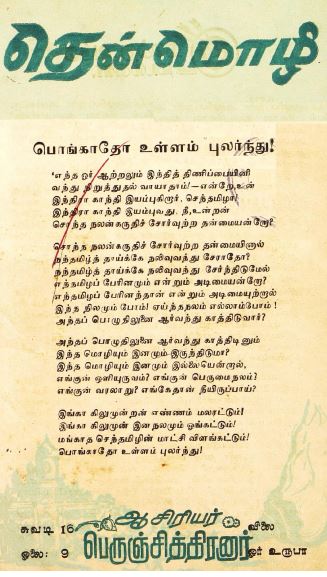 தென்மொழி
பொங்காதோ உள்ளம் புலர்ந்து!
'எந்த ஓர் ஆற்றலும் இந்தித் திணிப்பையினி
வந்து நிறுத்துதல் வாயாதாம்!—என்றே, உன்
இந்திரா காந்தி இயம்புகிறார், செந்தமிழா!
இந்திரா காந்தி இயம்புவது, நீ, உன்றன்
சொந்த நலன்கருதிச் சோர்வுற்ற தன்மையன்றோ?
சொந்த நலன்கருதிச் சோர்வுற்ற தன்மையினால்
நந்தமிழ்த் தாய்க்கே நலிவுவந்து சேராதோ?
நந்தமிழ்த் தாய்க்கே நலிவுவந்து சேர்ந்திடுமேல்
எந்தமிழப் பேரினமும் என்றும் அடிமையன்றோ?
எந்தமிழப் பேரினந்தான் என்றும் அடிமையுற்றால்
இந்த நிலமும் போம்! ஏய்ந்தநலம் எல்லாம்போம்!
அந்தப் பொழுதிலுனை ஆர்வந்து காத்திடுவார்?
அந்தப் பொழுதிலுனை ஆர்வந்து காத்திடினும்
இந்த மொழியும் இனமும் இருந்திடுமா?
இந்த மொழியும் இனமும் இல்லையென்றால்,
எங்குன் ஒளியுருவம்? எங்குன் பெருமைநலம்?
எங்குன் வரலாறு? எங்கேதான் நீயிருப்பாய்?
இங்கா கிலுமுன்றன் எண்ணம் மலரட்டும்!
இங்கா கிலுமுன் இனநலமும் ஓங்கட்டும்!
மங்காத செந்தமிழின் மாட்சி விளங்கட்டும்!
பொங்காதோ உள்ளம் புலர்ந்து!
சுவடி 16
ஓலை: 9
ஆசிரியர்
பெருஞ்சித்திரனார்
விலை
ஓர் உருபா